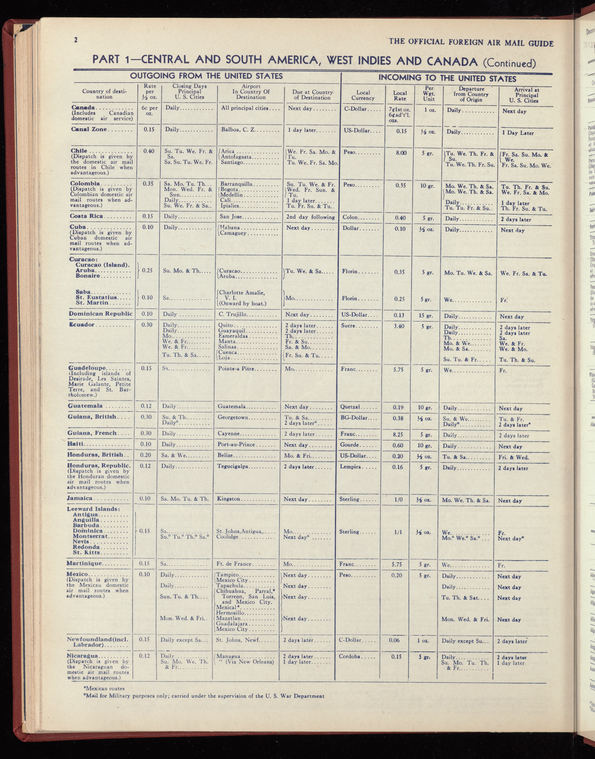 2
THE OFFICIAL FOREIGN AIR MAIL GUIDE
PART 1—CENTRAL AND SOUTH AMERICA, WEST INDIES AND CANADA (Continued)
OUTGOING FROM THE UNITED STATES INCOMING TO THE UNITED STATES
Country of destination Rate per ½ oz. Closing Days Principal U. S. Cities Airport In Country Of Destination Due at Country of Destination Local Currency Local Rate Per Wgt. Unit Departure from Country of Origin Arrival at Principal U. S. Cities
Canada 6c per oz. Daily All principal cities Next day C-Dollar 1 oz. Daily Next day
(Includes Canadian
domestic air service)
Canal Zone 0.15 Daily Balboa, C. Z. 1 day later US-Dollar 0.15 ½ oz. Daily 1 Day Later
Chile 0.40 Su. Tu. We. Fr. & Sa. Arica We. Fr. Sa. Mo. & Tu. Peso 8.00 5 gr. Tu. We. Th. Fr. & Su. Fr. Sa. Su. Mo. & We.
(Dispatch is given by Antofagasta
the domestic air mail Sa. Su. Tu. We. Fr. Santiago Tu. We. Fr. Sa. Mo. Tu. We. Th. Fr. Su. Fr. Sa. Su. Mo. We.
routes in Chile when
advantageous.)
Colombia 0.35 Sa. Mo. Tu. Th. Barranquilla Su. Tu. We. & Fr. Peso 0.35 10 gr. Mo. We. Th. & Sa. Tu. Th. Fr. & Su.
(Dispatch is given by Mon. Wed. Fr. & Sun. Bogota Wed. Fr. Sun. & Tu. Mo. We. Th. & Sa. We. Fr. Sa. & Mo.
Colombian domestic air Medellin
mail routes when advantageous.) Daily Cali 1 day later Daily 1 day later
Su. We. Fr. & Sa. Ipiales Tu. Fr. Su. & Tu. Tu. Tu. Fr. & Su. Th. Fr. Su. & Tu.
Costa Rica 0.15 Daily San Jose 2nd day following Colon 0.40 5 gr. Daily 2 days later
Cuba 0.10 Daily Habana Next day Dollar 0.10 ½ oz. Daily Next day
(Dispatch is given by Camaguey
Cuban domestic air
mail routes when advantageous.)
Curacao:
Curacao (Island).
Aruba 0.25 Su. Mo. & Th. Curacao Tu. We. & Sa. Florin 0.35 5 gr. Mo. Tu. We. & Sa. We. Fr. Sa. & Tu.
Bonaire Aruba
Saba Charlotte Amalie,
St. Eustatius 0.10 Sa. V. I. Mo. Florin 0.25 5 gr. We. Fr.
St. Martin (Onward by boat.)
Dominican Republic 0.10 Daily C. Trujillo Next day US-Dollar 0.13 15 gr. Daily Next day
Ecuador 0.30 Daily Quito 2 days later Sucre 3.40 5 gr. Daily 2 days later
Daily Guayaquil 2 days later Daily 2 days later
Mo. Esmeraldas Th. Th. Sa.
We. & Fr. Manta Fr. & Su. Mo. & We. We. & Fr.
We. & Fr. Salinas Sa. & Mo. Mo. & Sa. We. & Mo.
Tu. Th. & Sa. Cuenca Fr. Su. & Tu. Su. Tu. & Fr. Tu. Th. & Su.
Loja
Guadeloupe 0.15 Sa. Pointe-a Pitre Mo. Franc 5.75 5 gr. We. Fr.
(Including islands of
Desirade, Les Saintes,
Marie Galante, Petite
Terre, and St. Bartholomew.)
Guatemala 0.12 Daily Guatemala Next day Quetzal 0.19 10 gr. Daily Next day
Guiana, British 0.30 Su. & Th. Georgetown Tu. & Sa. BG-Dollar 0.38 ½ oz. Su. & We. Tu. & Fr.
Daily* 2 days later* Daily* 2 days later*
Guiana, French 0.30 Daily Cayenne 2 days later Franc 8.25 5 gr. Daily 2 days later
Haiti 0.10 Daily Port-au-Prince Next day Gourde 0.60 10 gr. Daily Next day
Honduras, British 0.20 Sa. & We. Belize Mo. & Fri. US-Dollar 0.20 ½ oz. Tu. & Sa. Fri. & Wed.
Honduras, Republic. 0.12 Daily Tegucigalpa 2 days later Lempira 0.16 5 gr. Daily 2 days later
(Dispatch is given by
the Honduran domestic
air mail routes when
advantageous.)
Jamaica 0.10 Sa. Mo. Tu. & Th. Kingston Next day Sterling 1/0 ½ oz. Mo. We. Th. & Sa. Next day
Leeward Islands:
Antigua
Anguilla
Barbuda
Dominica 0.15 Sa. St. Johns, Antigua, Mo. Sterling 1/1 ½ oz. We. Fr.
Montserrat Su.* Tu.* Th.* Su.* Coolidge Next day* Mo.* We.* Sa.* Next day*
Nevis
Redonda
St. Kitts
Martinique 0.15 Sa. Ft. de France Mo. Franc 5.75 5 gr. We. Fr.
Mexico 0.10 Daily Tampico Next day Peso 0.20 5 gr. Daily Next day
(Dispatch is given by Mexico City
the Mexican domestic Daily Tapachula Next day Daily Next day
air mail routes when Chihuahua, Parral,*
advantageous.) Sun. Tu. & Th. Torreon, San Luis, Next day Tu. Th. & Sat. Next day
and Mexico City.
Mexical*
Hermosillo
Mon. Wed. & Fri. Mazatlan Next day Mon. Wed. & Fri. Next day
Guadalajara
Mexico City
Newfoundland(incl. 0.15 Daily except Sa. St. Johns, Newf. 2 days later C-Dollar 0.06 1 oz. Daily except Su. 2 days later
Labrador)
Nicaragua 0.12 Daily Managua 2 days later Cordoba 0.15 5 gr. Daily 2 days later
(Dispatch is given by Su. Mo. We. Th. & Fr. " (Via New Orleans) 1 day later Su. Mo. Tu. Th. & Fr. 1 day later
the Nicaraguan domestic air mail routes
when advantageous.)
*Mexican routes
*Mail for Military purposes only; carried under the supervision of the U. S. War Department